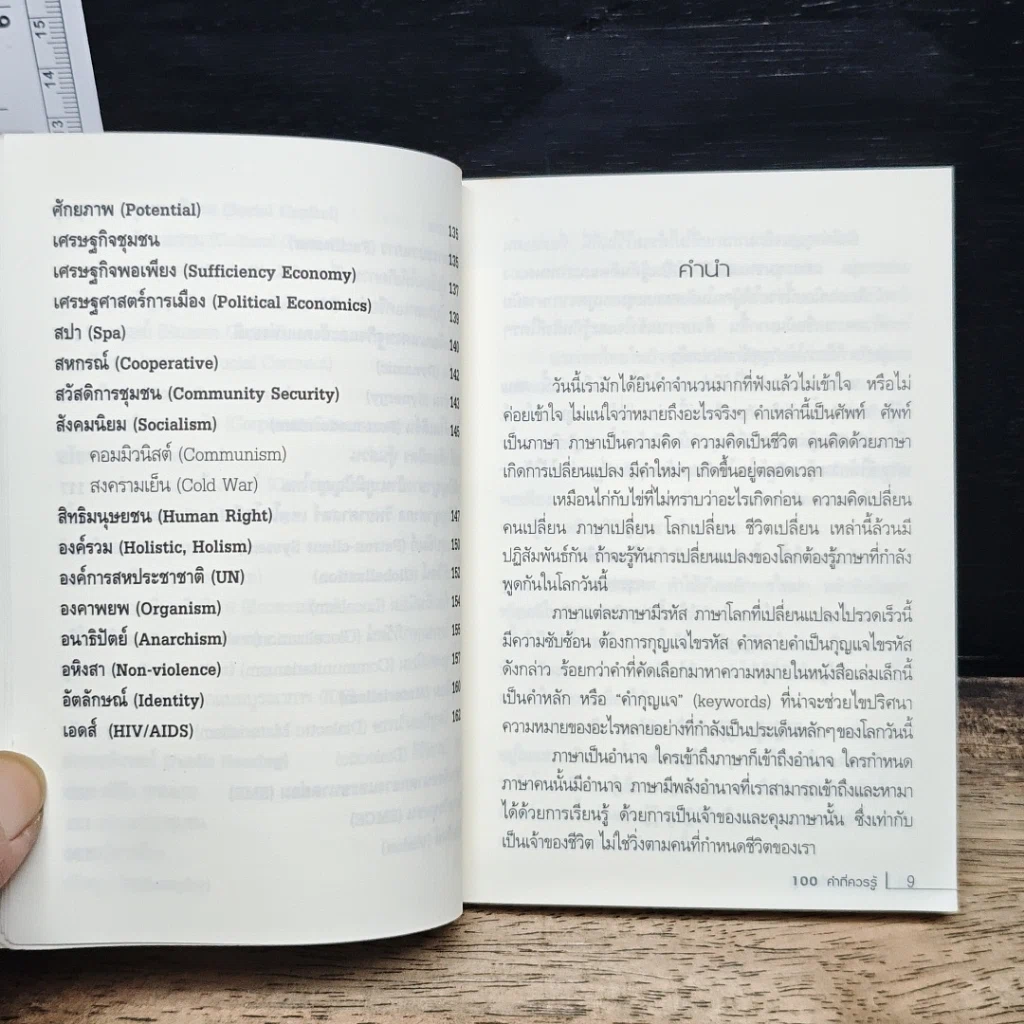 15
14
13
6
ศักยภาพ (Potential) 135
เศรษฐกิจชุมชน 135
เศรษฐกิจพอเพียง (Sufficiency Economy) 137
เศรษฐศาสตร์การเมือง (Political Economics) 139
สปา (Spa) 140
สหกรณ์ (Cooperative) 142
สวัสดิการชุมชน (Community Security) 143
สังคมนิยม (Socialism) 145
คอมมิวนิสต์ (Communism)
สงครามเย็น (Cold War)
สิทธิมนุษยชน (Human Right) 147
องค์รวม (Holistic, Holism) 150
องค์การสหประชาชาติ (UN) 152
องคาพยพ (Organism) 154
อนาธิปัตย์ (Anarchism) 155
อหิงสา (Non-violence) 157
อัตลักษณ์ (Identity) 160
เอดส์ (HIV/AIDS) 162
คำนำ
วันนี้เรามักได้ยินคำจำนวนมากที่ฟังแล้วไม่เข้าใจ หรือไม่
ค่อยเข้าใจ ไม่แน่ใจว่าหมายถึงอะไรจริงๆ คำเหล่านี้เป็นศัพท์ ศัพท์
เป็นภาษา ภาษาเป็นความคิด ความคิดเป็นชีวิต คนคิดด้วยภาษา
เกิดการเปลี่ยนแปลง มีคำใหม่ๆ เกิดขึ้นอยู่ตลอดเวลา
เหมือนไก่กับไข่ที่ไม่ทราบว่าอะไรเกิดก่อน ความคิดเปลี่ยน
คนเปลี่ยน ภาษาเปลี่ยน โลกเปลี่ยน ชีวิตเปลี่ยน เหล่านี้ล้วนมี
ปฏิสัมพันธ์กัน ถ้าจะรู้ทันการเปลี่ยนแปลงของโลกต้องรู้ภาษาที่กำลัง
พูดกันในโลกวันนี้
ภาษาแต่ละภาษามีรหัส ภาษาโลกที่เปลี่ยนแปลงไปรวดเร็วนี้
มีความซับซ้อน ต้องการกุญแจไขรหัส คำหลายคำเป็นกุญแจไขรหัส
ดังกล่าว ร้อยกว่าคำที่คัดเลือกมาหาความหมายในหนังสือเล่มเล็กนี้
เป็นคำหลัก หรือ "คำกุญแจ" (keywords) ที่น่าจะช่วยไขปริศนา
ความหมายของอะไรหลายอย่างที่กำลังเป็นประเด็นหลักๆของโลกวันนี้
ภาษาเป็นอำนาจ ใครเข้าถึงภาษาก็เข้าถึงอำนาจ ใครกำหนด
ภาษาคนนั้นมีอำนาจ ภาษามีพลังอำนาจที่เราสามารถเข้าถึงและหามา
ได้ด้วยการเรียนรู้ ด้วยการเป็นเจ้าของและคุมภาษานั้น ซึ่งเท่ากับ
เป็นเจ้าของชีวิต ไม่ใช่วิ่งตามคนที่กำหนดชีวิตของเรา
100 คำที่ควรรู้ 9